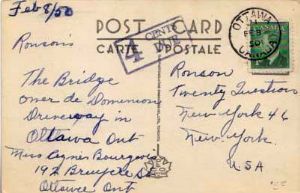 Feb 8/50
POST CARD
CARTE POSTALE
4 CENTS DUE
OTTAWA
CANADA
Ronsons
The Bridge
over de Dominion
Driveway in
Ottawa Ont
Miss Agnes Bourgeois
192 Bruyere St
Ottawa Ont
Ronson
Twenty Questions
New York 46
New York.
USA